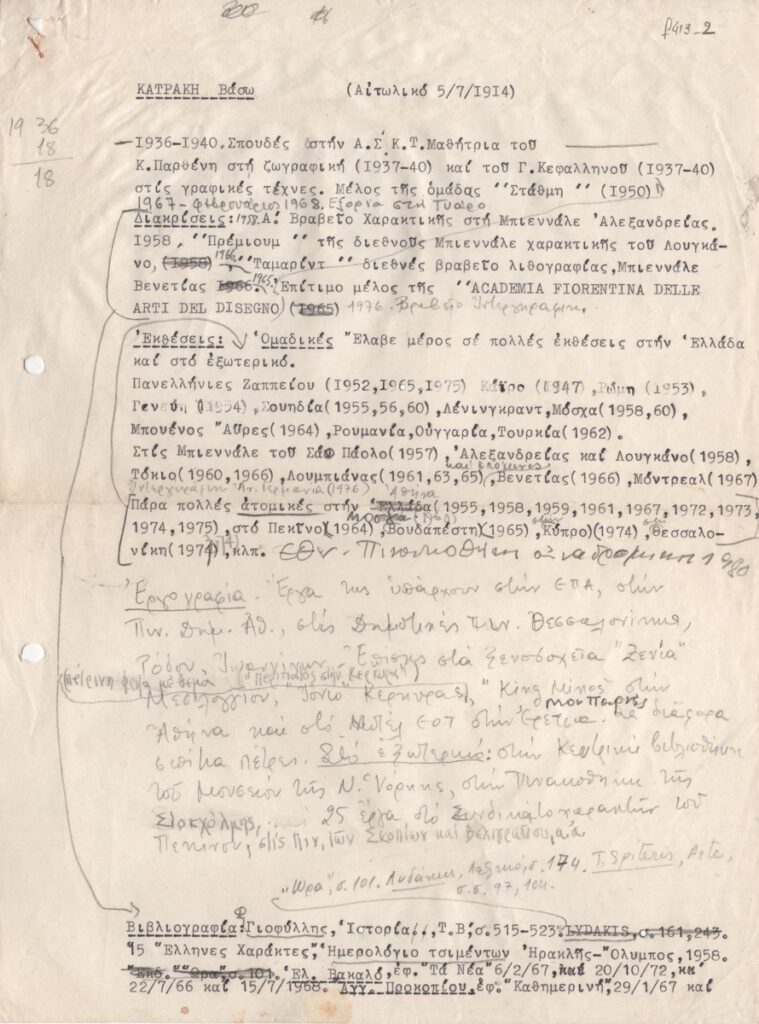 φ413-2
ΚΑΤΡΑΚΗ Βάσω (Αἰτωλικό 5/7/1914)
19 36
18
18
—1936-1940.Σπουδές στήν Α.Σ.Κ.Τ.Μαθήτρια τοῦ
Κ.Παρθένη στή ζωγραφική (1937-40) καί τοῦ Γ.Κεφαλληνοῦ (1937-40)
στίς γραφικές τέχνες. Μέλος τῆς ὁμάδας ''Στάθμη '' (1950)
1967-φεβρουάριος 1968. Εξορία στη Γυάρο
Διακρίσεις: 1958.Α! Βραβεῖο Χαρακτικῆς στή Μπιεννάλε Ἀλεξανδρείας.
1958 . ''Πρέμιουμ '' τῆς διεθνοῦς Μπιεννάλε χαρακτικῆς τοῦ Λουγκά-
νο, (1958) 1966, ''Ταμαρίντ '' διεθνές βραβεῖο λιθογραφίας,Μπιεννάλε
Βενετίας 1966. 1965. Ἐπίτιμο μέλος τῆς ''ACADEMIA FIORENTINA DELLE
ARTI DEL DISEGNO) (1965) 1976. Βραβείο Ιντεργκράφικ.
Ἐκθέσεις: Ὁμαδικές Ἔλαβε μέρος σέ πολλές ἐκθέσεις στήν Ἑλλάδα
καί στό ἐξωτερικό.
Πανελλήνιες Ζαππείου (1952,1965,1975) Κάϊρο (1947) ,Ρώμη (1953) ,
Γενεύη (1954) ,Σουηδία(1955,56,60) ,Λένινγκραντ,Μόσχα(1958,60) ,
Μπουένος Ἄϋρες(1964) ,Ρουμανία,Οὐγγαρία,Τουρκία(1962) .
Στίς Μπιεννάλε τοῦ Σάο Πάολο(1957) ,Ἀλεξανδρείας καί Λουγκάνο(1958) ,
Τόκιο(1960,1966) ,Λουμπιάνας(1961,63,65) και επόμενες ,Βενετίας (1966) ,Μόντρεαλ(1967)
Ιντεργκράφικ Αν. Γερμανία (1976) Αθήνα
Πάρα πολλές ἀτομικές στήν Ἑλλάδα (1955,1958,1959,1961,1967,1972,1973,
Μόσχα (1960)
1974,1975) ,στό Πεκῖνο(1964) ,Βουδαπέστη(1965) ,Κύπρο)(1974) ,Θεσσαλο-
νίκη(1974),κλπ. Εθν. Πινακοθήκη αναδρομική 1980
Ἐργογραφία. Ἔργα της ὑπάρχουν στήν ΕΠΑ, στήν
Πιν. Δημ. Αθ., στίς Δημοτικές Πιν. Θεσσαλονίκης,
Ρόδου, Ιωαννίνων. Ἐπίσης στά ξενοδοχεῖα "Ξενία"
(πέτρινη φόρμα με θέμα "Περίπατος στην Κέρκυρα")
Μεσολογγίου, "Ιόνιο" Κερκύρας, "King Minos" στήν
Μον Παρνές
Αθήνα και στό Μοτέλ ΕΟΤ στήν Ερέτρια. Σε διάφορα
σπίτια πέτρες. Στό ἐξωτερικό: στήν Κεντρική Βιβλιοθήκη
τοῦ Μουσείου τῆς Ν. Υόρκης, στήν Πινακοθήκη τῆς
Στοκχόλμης, και 25 ἔργα στό Συνδικάτο χαρακτών τοῦ
Πεκίνου, στίς Πιν. των Σκοπίων και Βελιγραδίου, κ.ά.
"Ώρα", σ. 101. Λυδάκης, Λεξικό, σ. 174. T. Spiteris, Arte,
σ.σ. 97, 104.
Βιβλιογραφία: Φ Γιοφύλλης, Ἱστορία.,,Τ.Β,σ.515-523. LYDAKIS, σ.161,243.
15 Ἕλληνες Χαράκτες", Ἡμερολόγιο τσιμέντων Ἡρακλῆς-Ὄλυμπος, 1958.
"Εκδ. "Ωρα",σ.101. Ἑλ. Βακαλό, ἐφ. "Τά Νέα" 6/2/67, καί 20/10/72, καί
22/7/66 καί 15/7/1968. Ἀγγ. Προκοπίου, ἐφ. "Καθημερινή", 29/1/67 καί